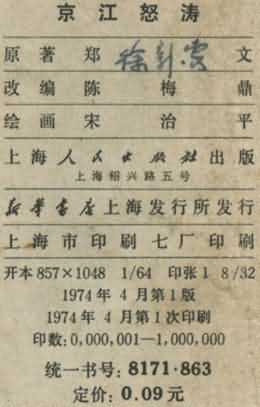 京江怒涛
原著 郑 文
改编 陈梅鼎
绘画 宋治平
上海人民出版社出版
上海绍兴路五号
新华书店上海发行所发行
上海市印刷七厂印刷
开本 857×1048 1/64 印张 1 8/32
1974年 4月第1版
1974年 4月第1次印刷
印数:0,000,001—1,000,000
统一书号: 8171·863
定价: 0.09元